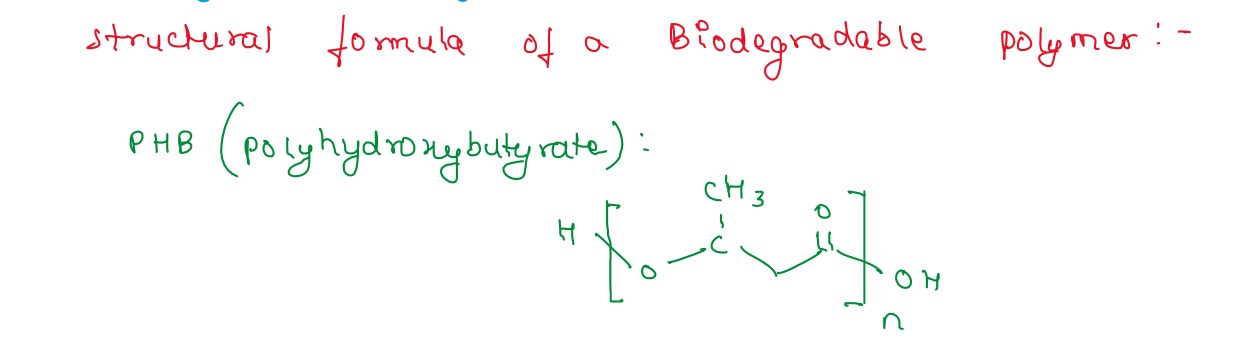 structural formula of a Biodegradable polymer :-
PHB (polyhydroxybutyrate) :
CH3
O
H [ O C ]n OH